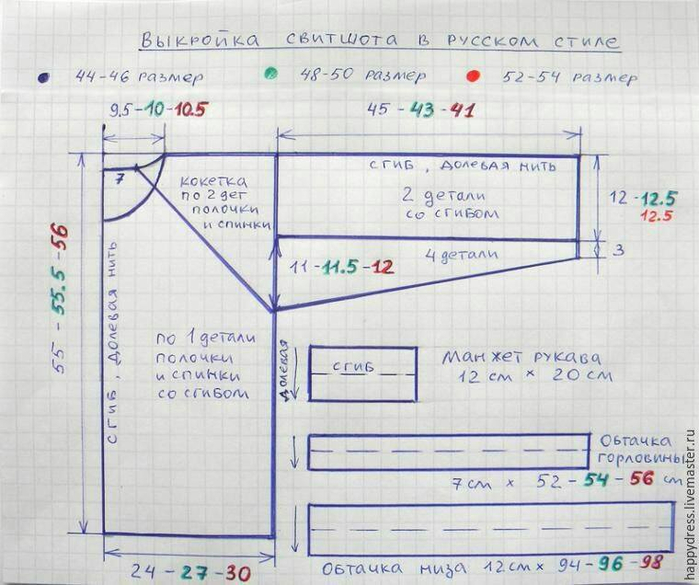 Выкройка свитшота в русском стиле
44-46 размер
48-50 размер
52-54 размер
9,5-10-10.5
45-43-41
7
кокетка
по 2 дет
полочки
и спинки
сгиб, долевая нить
2 детали
со сгибом
12-12.5
12.5
3
4 детали
11-11.5-12
55-55.5-56
сгиб, долевая нить
по 1 детали
полочки
и спинки
со сгибом
долевая
сгиб
Манжет рукава
12 см × 20 см
Обтачка
горловины
7 см × 52-54-56 см
24-27-30
Обтачка низа 12 см × 94-96-98
happydress.livemaster.ru